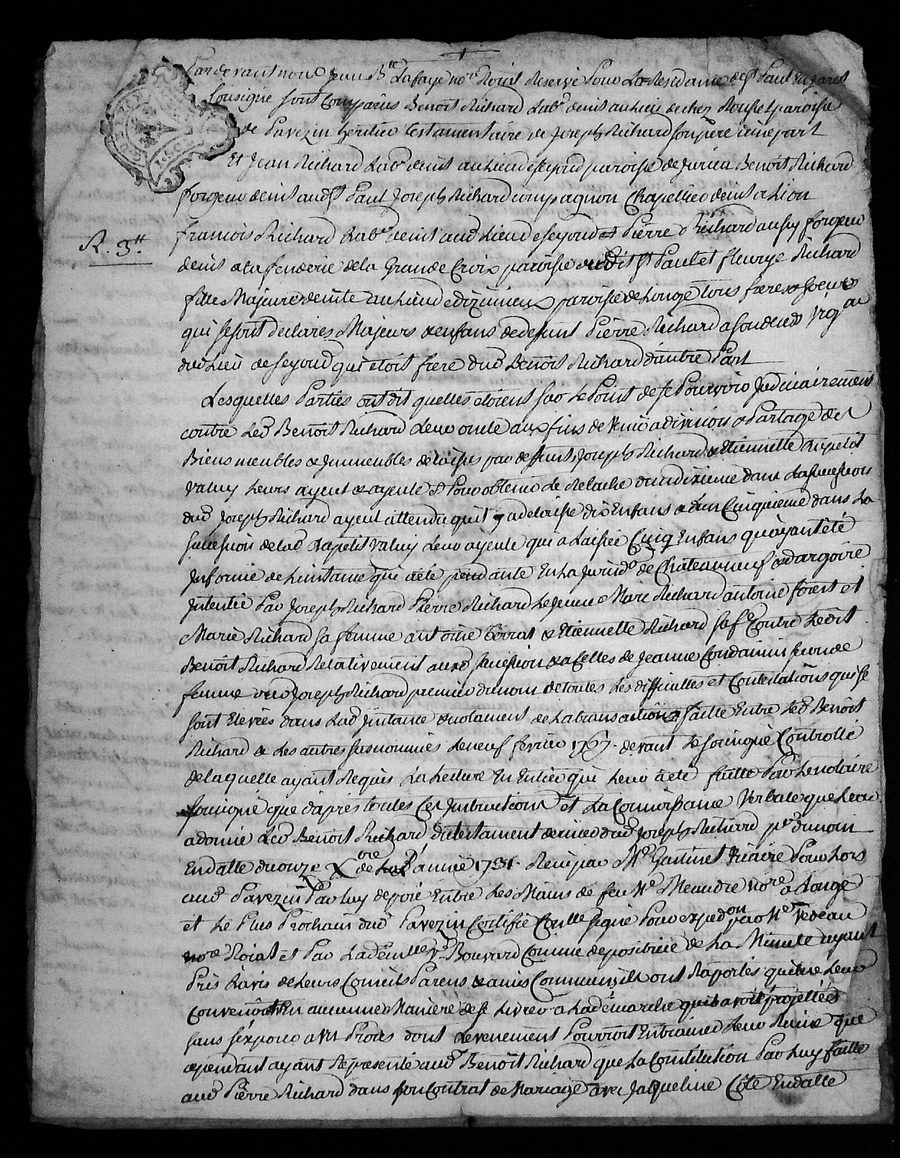 Pardevant nous Jean B.te Lafaye no.re Roial Reservé Pour La Residance de S.t Paul En Jaret
Sousigné sont comparus Benoit Richard Lab.r demt au lieu de chez paroisse
de Pavezin heritier testamentaire de Joseph Richard son père d'une part
Et Jean Richard Lab.r demt au Lieu de seyoud paroisse de Benoit Richard
forgeur demt aud. S.t Paul Joseph Richard compagnon Chapellier demt a Lion
françois Richard Lab.r demt aud. Lieu de seyoud et Pierre Richard aussy forgeur
R. 3.tt
demt a La fenderie de la Grande Croix paroisse dudit S.t Paul et fleurye Richard
fille Majeure demte au Lieu de paroisse de Longe tous freres & soeurs
qui se sont declares Majeurs & enfans de defunt Pierre Richard
du Lieu de seyoud qui etoit frere dud. Benoit Richard d'autre Part
Lesquelles Parties ont dit quelles etoient sur Le Point de se Pourvoir Judiciairement
contre Led. Benoit Richard Leur oncle aux fins de venir a division & Partage des
Biens meubles & Immeubles delaissés par defunts Joseph Richard & Etiennette Rapelit
Valuy Leurs ayeul & ayeule & Pour obtenir Le Relache du dixieme dans La succession
dud. Joseph Richard ayeul attendu qu'il y a delaissé dix Enfans & d'un Cinquieme dans La
succession de lad. Rapelit Valuy Leur ayeule qui a Laissée Cinq Enfans qu'ayant été
Informé de L'instance qui a eté pendante En La Jurid.on de Châteauneuf & dargoire
Intentée Par Joseph Richard Pierre Richard Le Jeune Marc Richard antoine forest et
Marie Richard sa femme antoine & Etiennette Richard sa f.e Contre Ledit
Benoit Richard Relativement aux d. succession & a Celles de Jeanne Condamin seconde
femme dud. Joseph Richard premier du nom de toutes Les difficultes et Contestations qui se
sont Elevées dans Lad. Instance & notament de La transaction faitte Entre Led. Benoit
Richard & Les autres susnommés Le neuf fevrier 1767. devant Le sousigné Controllé
de laquelle ayant Requis La Lecture En Entier qui Leur a eté faitte Par Le notaire
sousigné que d'apres toutes Ces Instructions et La Connoissance Verbale que Leur
a donné Led. Benoit Richard du testament dernier dud. Joseph Richard p.er du nom
En datte du onze X.bre de Lad. année 1731. Reçu par M.e Gautinet Vicaire Pour Lors
aud. Pavezin Par Luy deposé Entre Les Mains de feu M.e Meandre no.re a Longe
et Le Plus Prochain dud. Pavezin Certifié signé Pour expedon par M.e Vedeau
no.re Roial et Par La dem.lle V.e Bouvard Comme depositaire de La Minutte ayant
Pris L'avis de Leurs Conseils Parens & amis Communs ils ont Raportés qu'il ne Leur
Convenoit En aucunne Maniere de se Livrer a La demarche qu'ils avoit projettées
sans s'exposer a un Procès dont L'evenement Pourroit Entrainer Leur Ruine que
cependant ayant Representé aud. Benoit Richard que La Constitution Par Luy faitte
aud. Pierre Richard dans son Contrat de Mariage avec Jaqueline Côte En datte